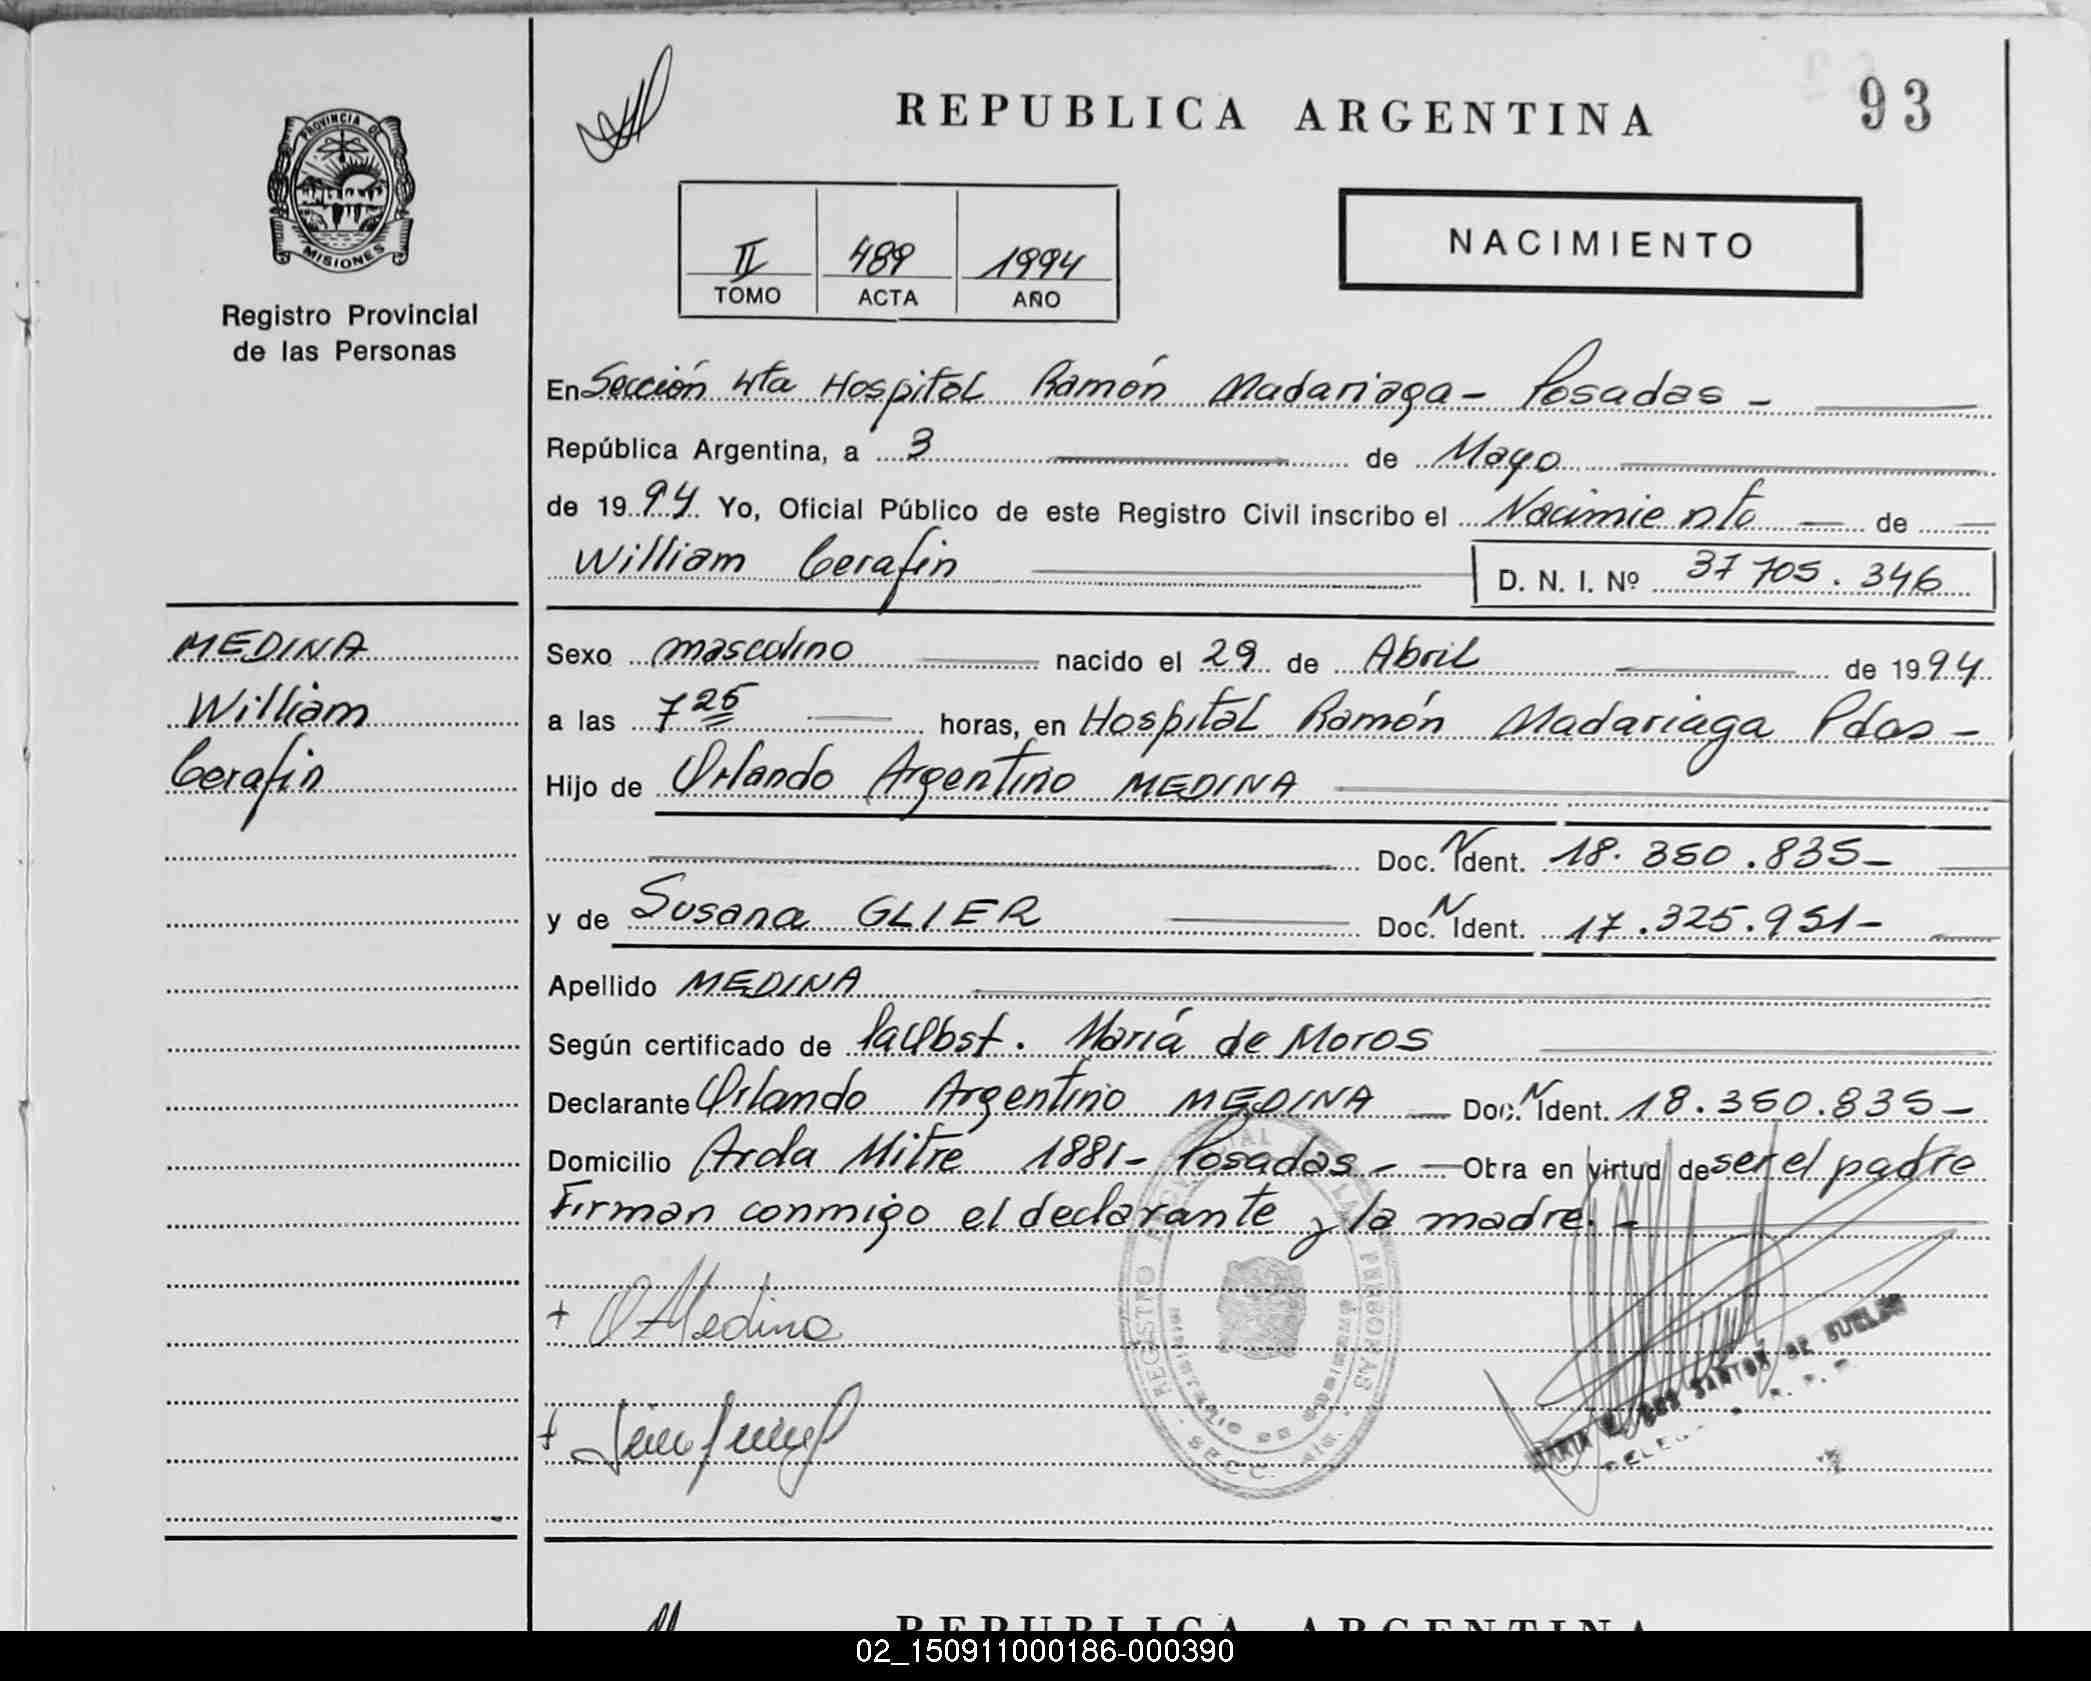 REPUBLICA ARGENTINA
93
PROVINCIA DE
MISIONES
Registro Provincial
de las Personas
II 489 1994
TOMO ACTA AÑO
NACIMIENTO
En Sección 4ta Hospital Ramón Madariaga - Posadas -
República Argentina, a 3 de Mayo
de 1994 Yo, Oficial Público de este Registro Civil inscribo el Nacimiento de
William Cerafin D. N. I. Nº 37 705.346
MEDINA
William
Cerafin
Sexo masculino nacido el 29 de Abril de 1994
a las 7 25 horas, en Hospital Ramón Madariaga Pdas -
Hijo de Orlando Argentino MEDINA
Doc. N Ident. 18.350.835-
y de Susana GLIER Doc. N Ident. 17.325.951-
Apellido MEDINA
Según certificado de María de Moros
Declarante Orlando Argentino MEDINA Doc. N Ident. 18.350.835-
Domicilio Avda Mitre 1881- Posadas - Obra en virtud de ser el padre
Firman conmigo el declarante y la madre. -
+ O Medina
+
REGISTRO PROVINCIAL DE LAS PERSONAS
SECC. 4ta.
MARIA DOS SANTOS DE
REPUBLICA ARGENTINA
02_150911000186-000390